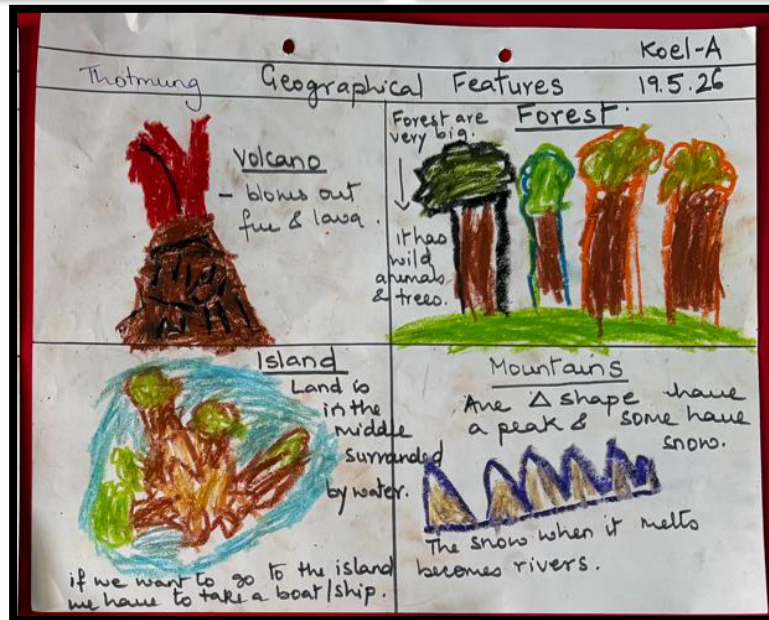 Koel-A
Thotmung Geographical Features 19.5.26
Volcano
- blows out
fire & lava.
Forest are
very big.
Forest.
it has
wild
animals
& trees.
Island
Land is
in the
middle
surranded
by water.
if we want to go to the island
we have to take a boat/ship.
Mountains
Are △ shape have
a peak & some have
snow.
The snow when it melts
becomes rivers.